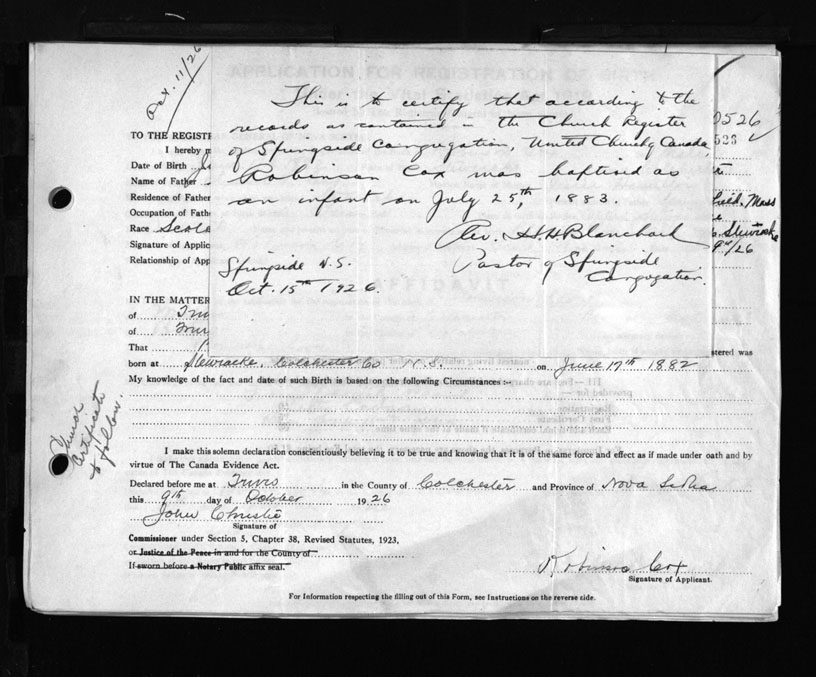 Oct. 11/26
APPLICATION FOR REGISTRATION OF BIRTH
This is to certify that according to the
records as contained in the Church Register
of Springside Congregation, United Church of Canada,
Robinson Cox was baptised as
an infant on July 25th, 1883.
Rev. H. H. Blanchard
Pastor of Springside
Congregation.
Springside N.S.
Oct. 15th 1926.
0526
523
TO THE REGISTR
I hereby
Date of Birth
Name of Father
Residence of Father
field, Mass
Occupation of Fath
Race Scot
Stewiacke
Signature of Applic
9th/26
Relationship of App
AFFIDAVIT
IN THE MATTER
of
of
That
stered was
born at Stewiacke, Colchester Co N.S. on June 17th 1882
My knowledge of the fact and date of such Birth is based on the following Circumstances :-
Church
Certificate
to follow.
I make this solemn declaration conscientiously believing it to be true and knowing that it is of the same force and effect as if made under oath and by
virtue of The Canada Evidence Act.
Declared before me at Truro in the County of Colchester and Province of Nova Scotia
this 9th day of October 1926
John Christie
Signature of
Commissioner under Section 5, Chapter 38, Revised Statutes, 1923,
or Justice of the Peace in and for the County of
If sworn before a Notary Public affix seal.
Robinson Cox
Signature of Applicant.
For Information respecting the filling out of this Form, see Instructions on the reverse side.